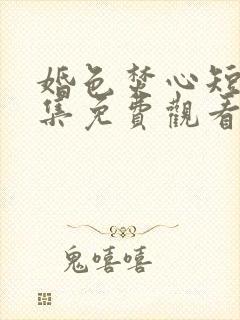 婚色焚心短
集免費觀看
鬼嘻嘻